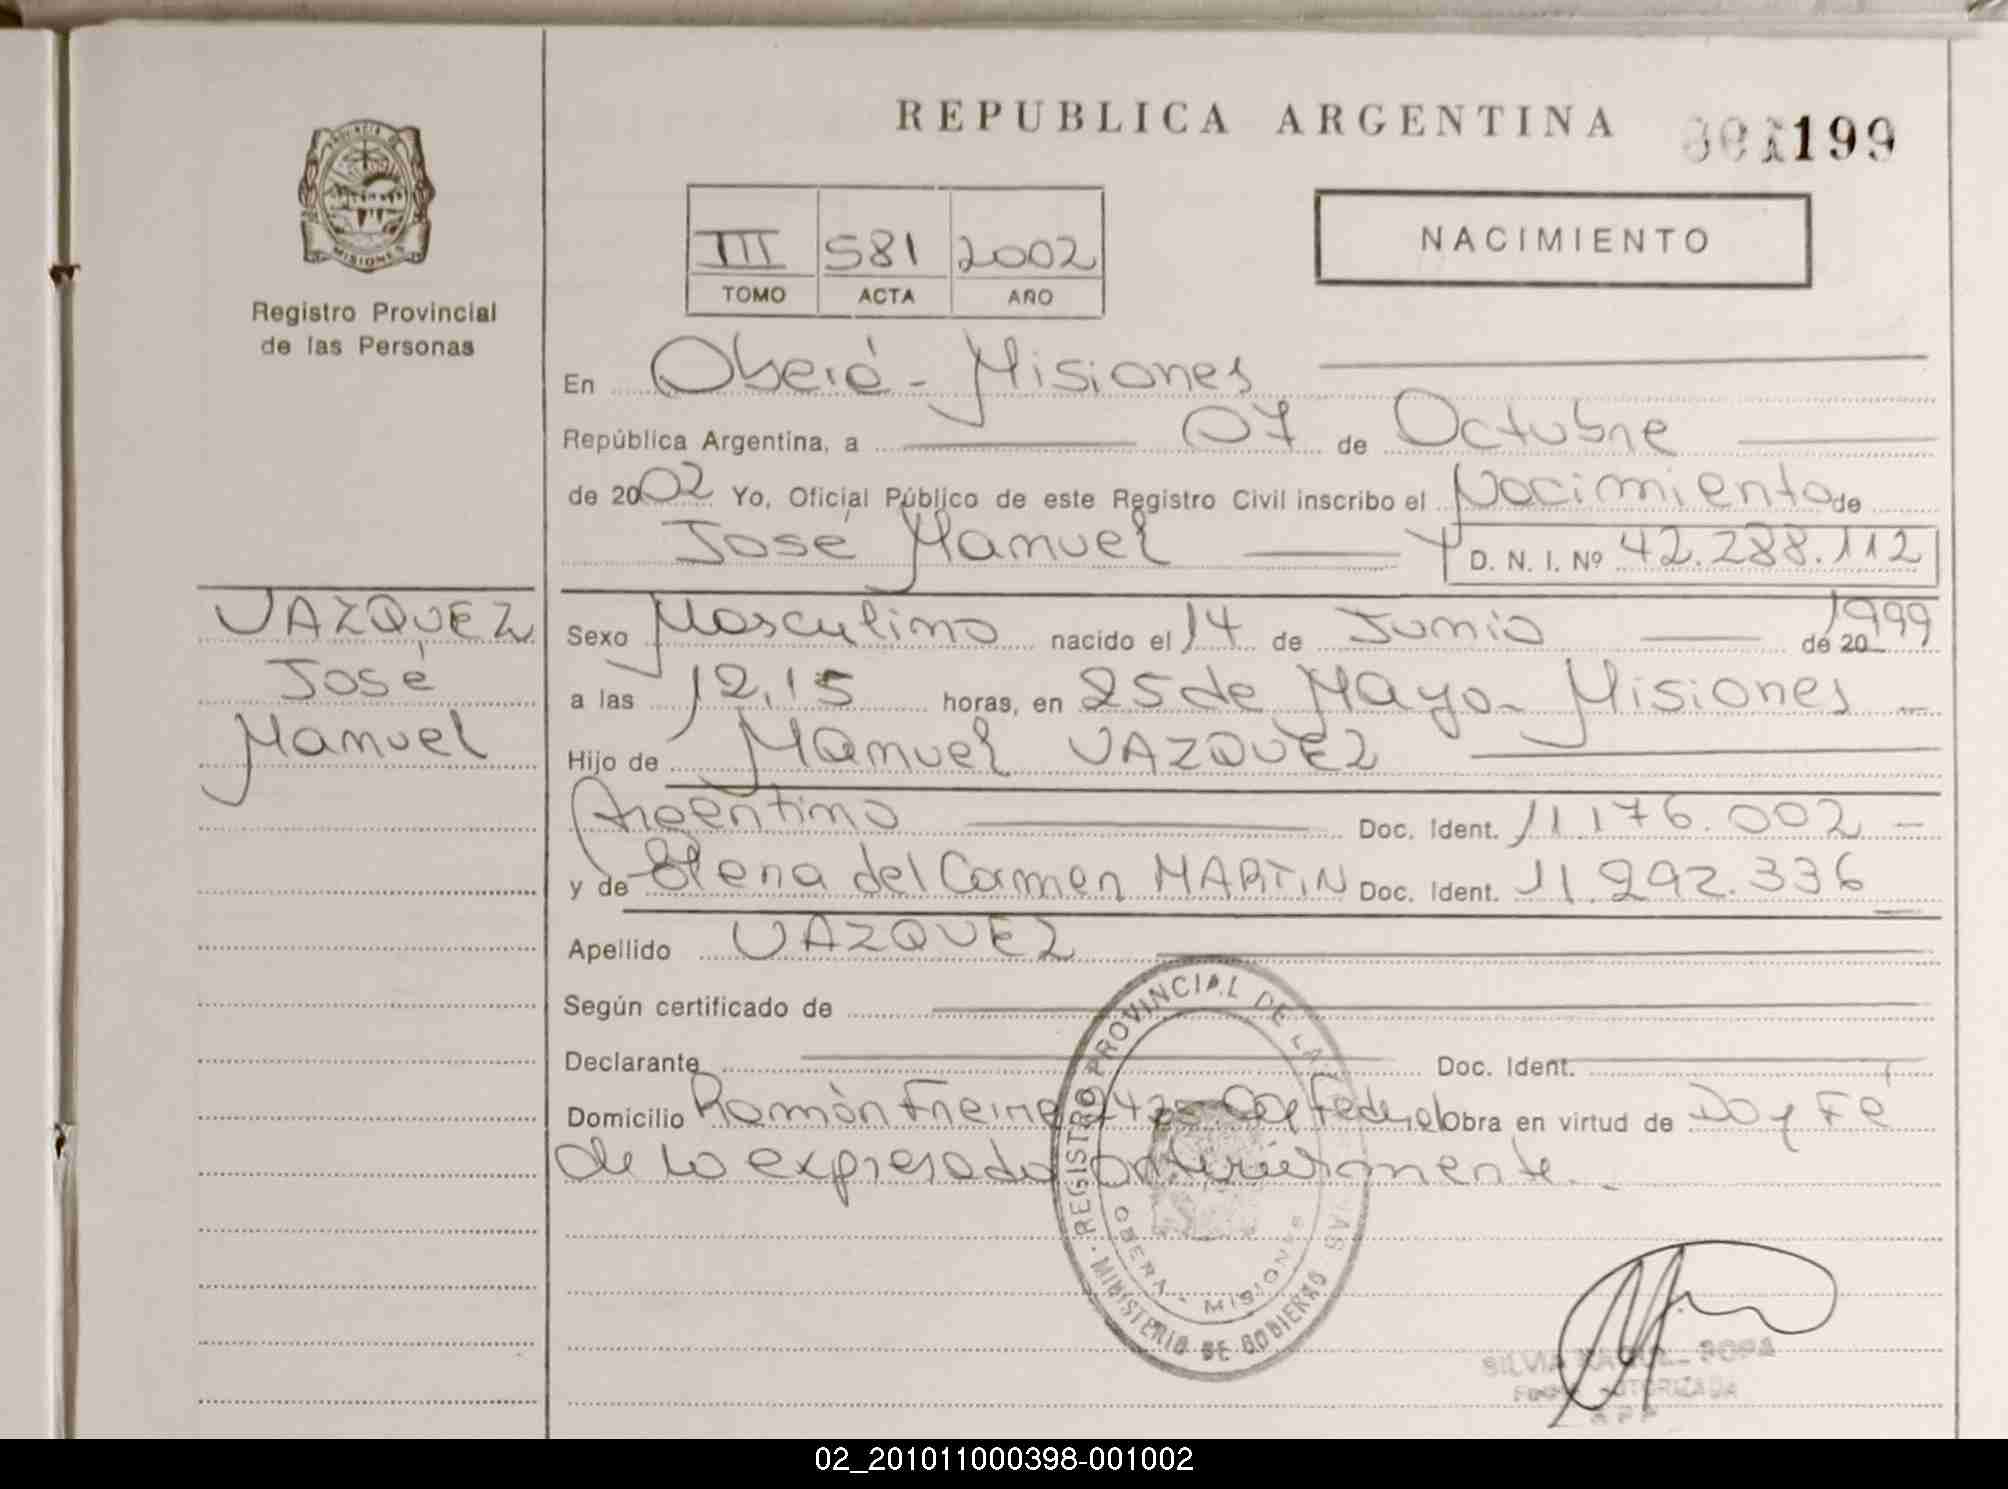 REPUBLICA ARGENTINA
199
PROVINCIA DE
MISIONES
Registro Provincial
de las Personas
NACIMIENTO
III 581 2002
TOMO ACTA AÑO
En Oberá - Misiones
República Argentina, a 07 de Octubre
de 2002 Yo, Oficial Público de este Registro Civil inscribo el Nacimiento de
José Manuel D. N. I. Nº 42.288.112
VAZQUEZ
José
Manuel
Sexo Masculino nacido el 14 de Junio de 20 1999
a las 12,15 horas, en 25 de Mayo - Misiones
Hijo de Manuel VAZQUEZ
Argentino Doc. Ident. 11.176.002
y de Elena del Carmen MARTIN Doc. Ident. 11.292.336
Apellido VAZQUEZ
Según certificado de
Declarante Doc. Ident.
Domicilio Ramón Freire Obra en virtud de Doy Fé
de lo expresado anteriormente.
REGISTRO PROVINCIAL DE LAS
OBERA - MISIONES
MINISTERIO DE GOBIERNO
SILVIA RAQUEL POPA
AUTORIZADA
02_201011000398-001002